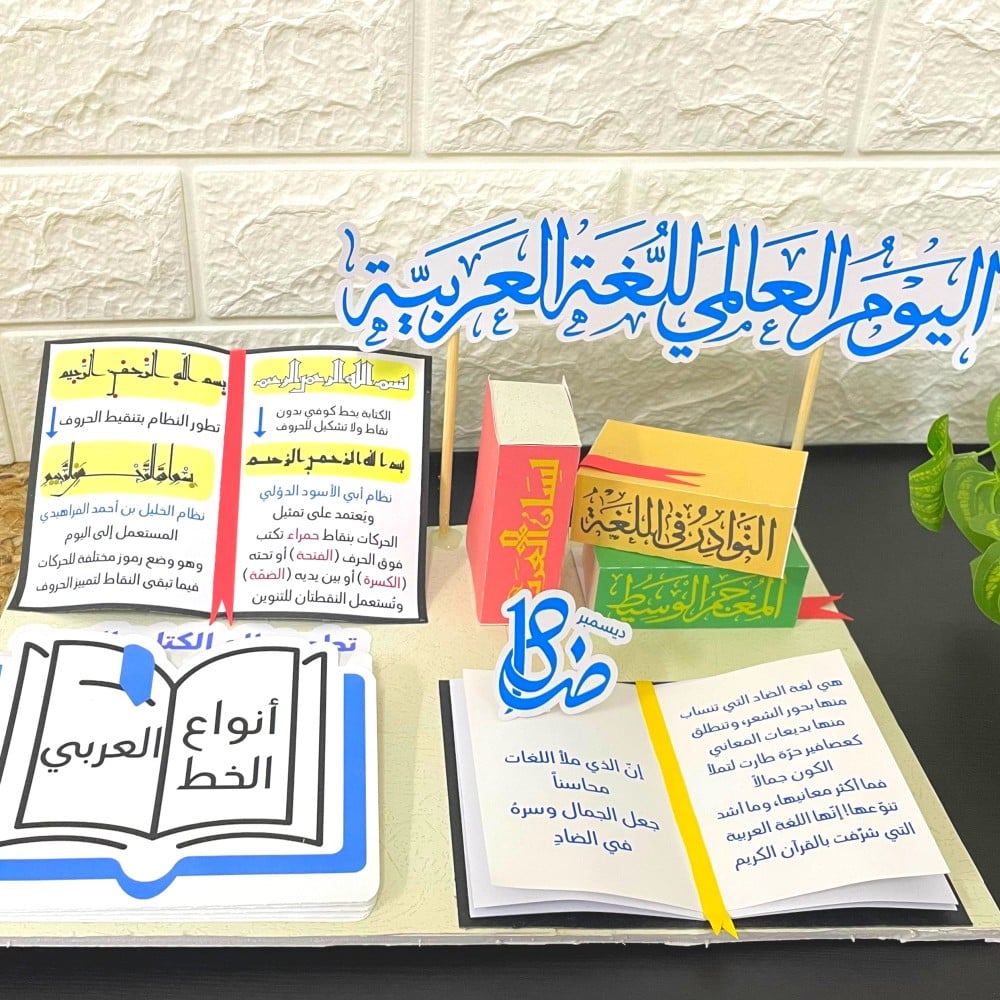 اليَوْمُ العَالَمِي لِلُّغَةِ العَرَبِيَّة
بسم الله الرحمن الرحيم
الكتابة بخط كوفي بدون
نقاط ولا تشكيل للحروف
بسم الله الرحمن الرحيم
نظام أبي الأسود الدؤلي
ويُعتمد على تمثيل
الحركات بنقاط حمراء تكتب
فوق الحرف (الفتحة) أو تحته
(الكسرة) أو بين يديه (الضمّة)
وتُستعمل النقطتان للتنوين
بسم الله الرحمن الرحيم
تطور النظام بتنقيط الحروف
نظام الخليل بن أحمد الفراهيدي
المستعمل إلى اليوم
وهو وضع رموز مختلفة للحركات
فيما تبقى النقاط لتمييز الحروف
لِسَانُ العَرَبِ
النَّوَادِرُ فِي اللُّغَة
المُعْجَمُ الوَسِيْط
18 ديسمبر
ض
أنواع
الخط
العربي
هي لغة الضاد التي تنساب
منها بحور الشعر، وتنطلق
منها بديعات المعاني
كعصافير حرّة طارت لتملأ
الكون جمالاً
فما أكثر معانيها، وما أشد
تنوّعها! إنّها اللغة العربية
التي شرّفت بالقرآن الكريم
إنّ الذي ملأ اللغات
محاسناً
جعل الجمال وسرهُ
في الضادِ